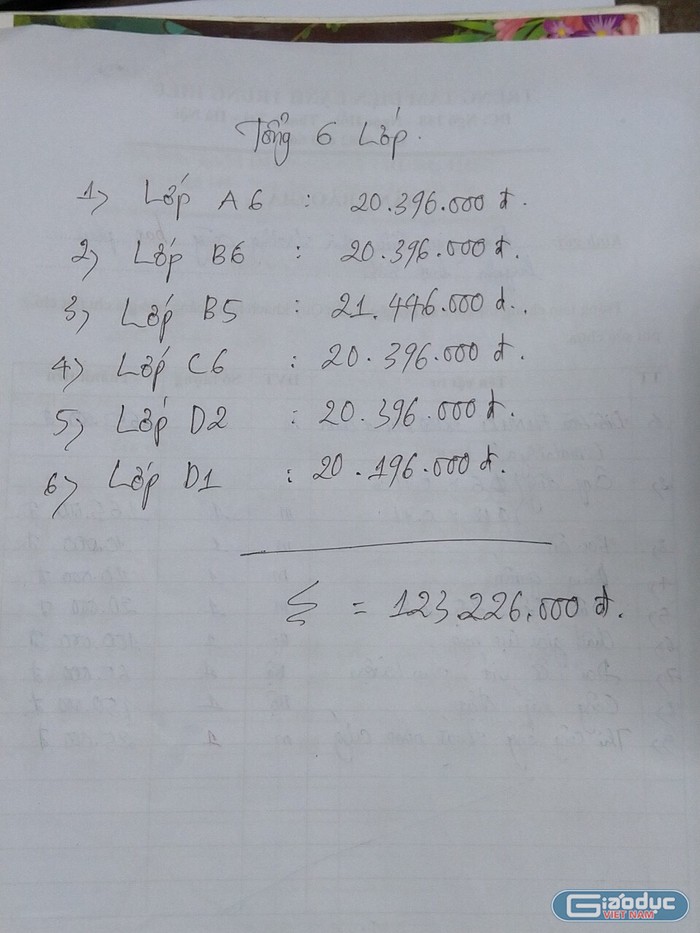 Tổng 6 Lớp.
1) Lớp A6 : 20.396.000 đ.
2) Lớp B6 : 20.396.000 đ.
3) Lớp B5 : 21.446.000 đ..
4) Lớp C6 : 20.396.000 đ.
5) Lớp D2 : 20.396.000 đ.
6) Lớp D1 : 20.196.000 đ.
Σ = 123.226.000 đ.
Giáodục
VIỆT NAM